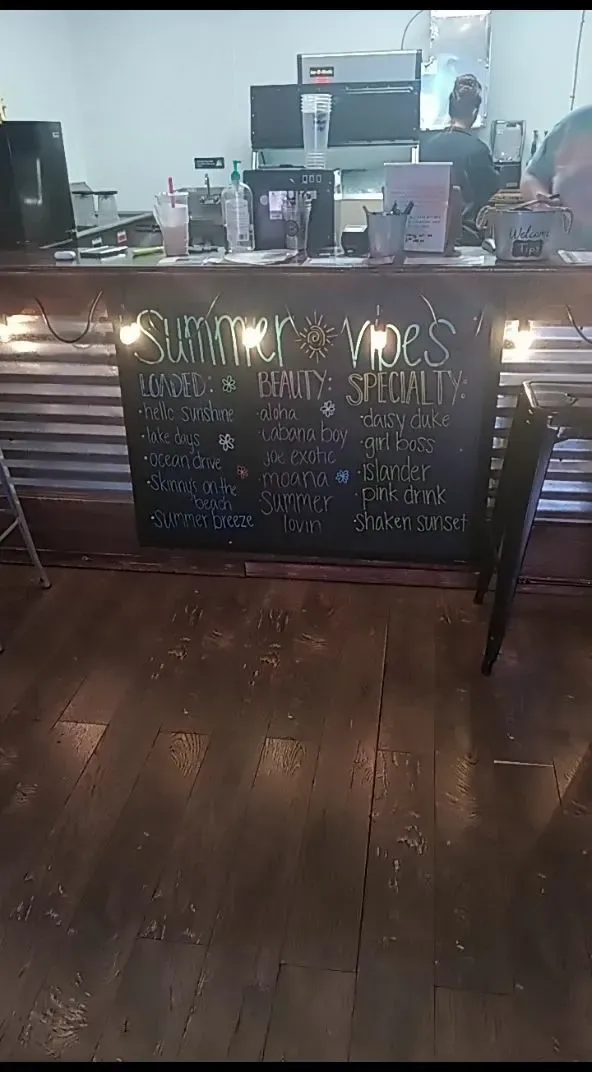 Summer Vibes
LOADED:
•hello sunshine
•lake days
•ocean drive
•Skinny's on the
beach
•Summer breeze
BEAUTY:
•aloha
•cabana boy
joe exotic
•moana
Summer
lovin
SPECIALTY:
•daisy duke
•girl boss
•islander
•pink drink
shaken sunset
Welcome
Tips